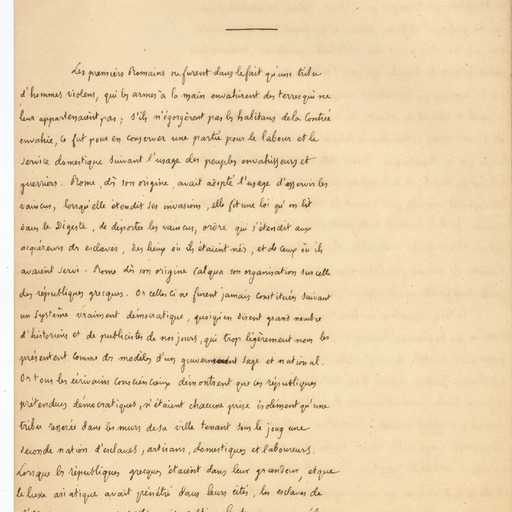 Les premiers Romains ne furent dans le fait qu'une tribu
d'hommes violens, qui les armes à la main envahirent des terres qui ne
leur appartenaient pas ; s'ils n'égorgèrent pas les habitans de la contrée
envahie, ce fut pour en conserver une partie pour le labour et le
service domestique suivant l'usage des peuples envahisseurs et
guerriers. Rome, dès son origine, avait adopté l'usage d'asservir les
vaincus, lorsqu'elle étendit ses invasions, elle fit une loi qu'on lit
dans le Digeste, de déporter les vaincus, ordre qui s'étendit aux
acquéreurs des esclaves, des lieux où ils étaient nés, et de ceux où ils
avaient servi. Rome dès son origine calqua son organisation sur celle
des républiques grecques. Or celles ci ne furent jamais constituées suivant
un système vraiment démocratique, quoiqu'en disent grand nombre
d'historiens et de publicistes de nos jours, qui trop légèrement nous les
présentent comme des modèles d'un gouvernement sage et national.
Or tous les écrivains consciencieux démontrent que ces républiques
prétendues démocratiques, n'étaient chacune prise isolément qu'une
tribu resserée dans les murs de sa ville tenant sous le joug une
seconde nation d'esclaves, artisans, domestiques et laboureurs.
Lorsque les républiques grecques étaient dans leur grandeur, et que
le luxe asiatique avait pénétré dans leurs cités, les esclaves de